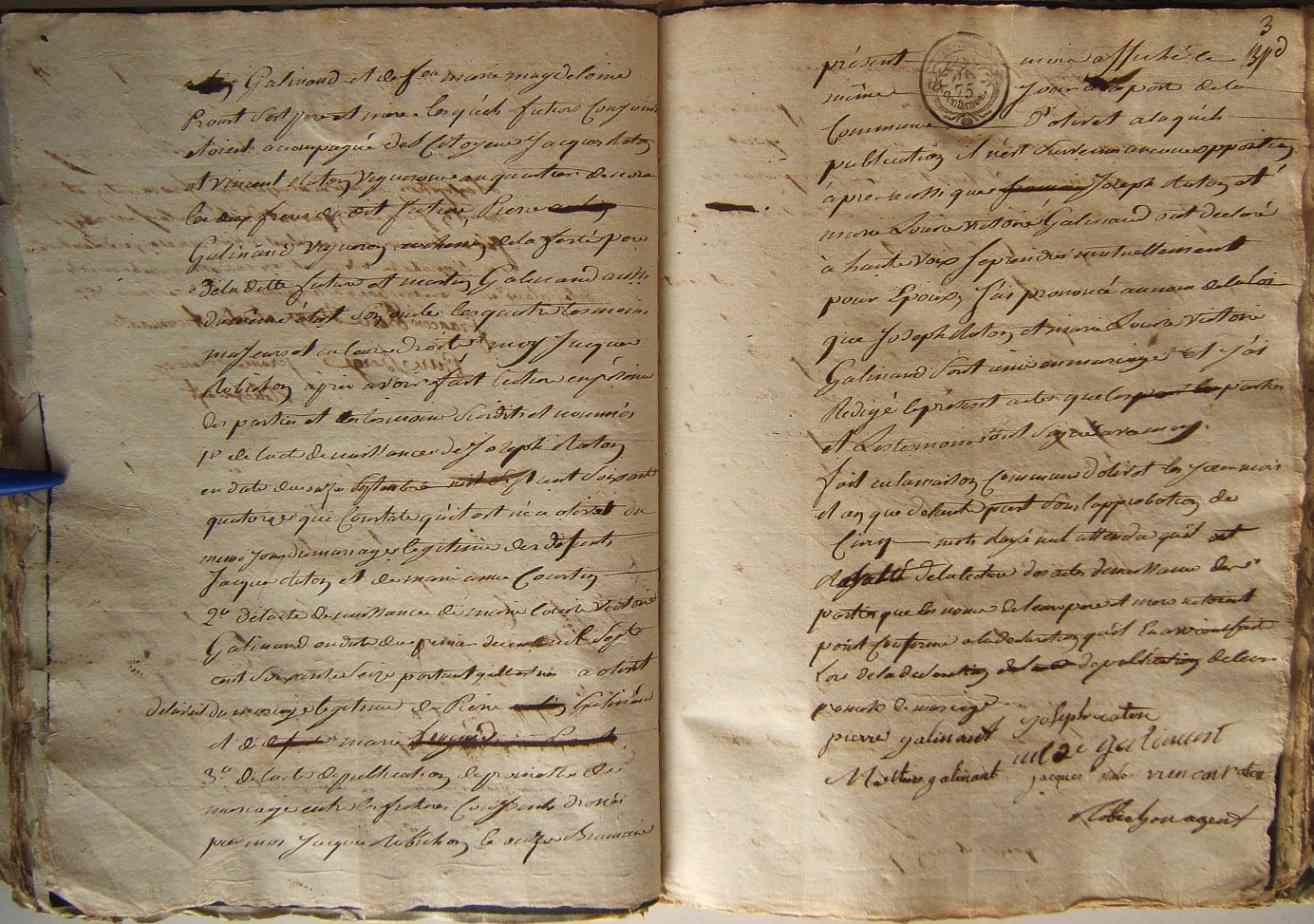 Galinand et de feu marie magdeleine
Prout Ses pere et mere lesquels futurs Conjoints
etoient accompagné des Citoyens Jacques Raton
et Vincent Raton Vignerons au quartier de
les deux freres du dit futur, Pierre
Galinand Vigneron de la ferté pere
de la ditte future et martin Galinand aussi
du même état son oncle les quatre temoins
majeurs et moy Jacques
Robichon après avoir fait lecture en présence
des parties et temoins susdits et nommés
1º de lacte de naissance de Joseph Raton
en date du seize septembre mil sept cent soixante
quatorze qui Constate qu'il est né a olivet du
meme jour du mariage legitime des defunts
Jacques Raton et de marie anne Courtin
2º de lacte de naissance de marie Louise Victoire
Galinand en date du premier decembre mil Sept
cent Soixante Seize portant quelle est née a olivet
du mariage legitime de Pierre Galinand
et de marie
3º de lacte de publication de promesse de
mariage entre les futurs Conjoints dressé
par moi Jacques Robichon le onze Brumaire
3
présent mois affiché le
même jour a la porte de la
Commune D'olivet a laquelle
publication il n'est survenu aucune opposition
après aussi que Joseph Raton et
marie Louise Victoire Galinand ont declaré
à haute voix se prendre mutuellement
pour Epoux, J'ai prononcé au nom de la loi
que Joseph Raton et marie Louise Victoire
Galinand Sont unis en mariage et J'ai
Redigé le present acte que les parties
et Les temoins ont Signé avec moy.
fait en la maison Commune d'olivet les Jour mois
et an que dessus sous l'approbation de
Cinq mots rayé nul attendu qu'il est
de la lecture des actes de naissance des
parties que les noms de leur pere et mere n'etoient
point Conforme a la declaration qu'il En avoient fait
Lors de la de publication de leur
promesse de mariage
pierre galinant Joseph raton
galinant
galinant jacques raton vincent raton
Robichon agent